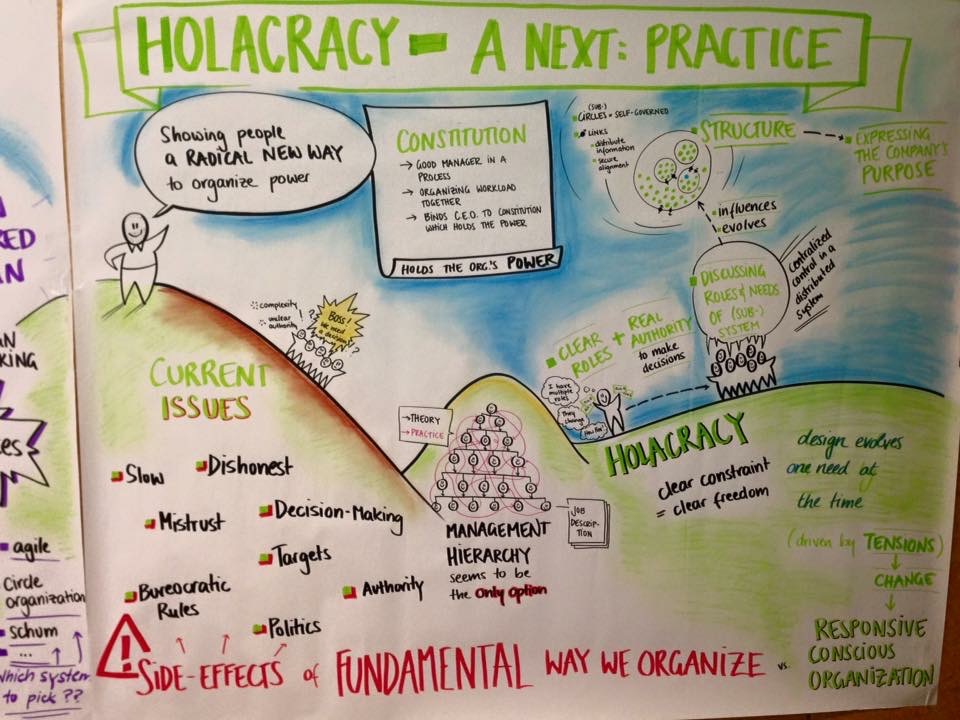 HOLACRACY - A NEXT: PRACTICE
Showing people
a RADICAL NEW WAY
to organize power
CONSTITUTION
→ GOOD MANAGER IN A
PROCESS
→ ORGANIZING WORKLOAD
TOGETHER
→ BINDS C.E.O. TO CONSTITUTION
WHICH HOLDS THE POWER
HOLDS THE ORG.'S POWER
(SUB-)
CIRCLES = SELF-GOVERNED
LINKS
distribute
information
secure
alignment
STRUCTURE
EXPRESSING
THE COMPANY'S
PURPOSE
influences
evolves
DISCUSSING
ROLES & NEEDS
OF (SUB-)
SYSTEM
centralized
control in a
distributed
system
complexity
unclear
authority
Boss!
We need
a decision
??
CLEAR
ROLES
+ REAL
AUTHORITY
to make
decisions
I have
multiple
roles
They
change
CURRENT
ISSUES
Slow
Dishonest
Mistrust
Decision-Making
Targets
Bureocratic
Rules
Authority
Politics
→THEORY
→PRACTICE
JOB
DESCRIP-
TION
MANAGEMENT
HIERARCHY
seems to be
the only option
HOLACRACY
clear constraint
= clear freedom
design evolves
one need at
the time
(driven by TENSIONS)
CHANGE
RESPONSIVE
CONSCIOUS
ORGANIZATION
!
SIDE-EFFECTS of FUNDAMENTAL WAY WE ORGANIZE vs.
RED
N
AN
KING
ces
agile
circle
organization
schum
...
which system
to pick ??